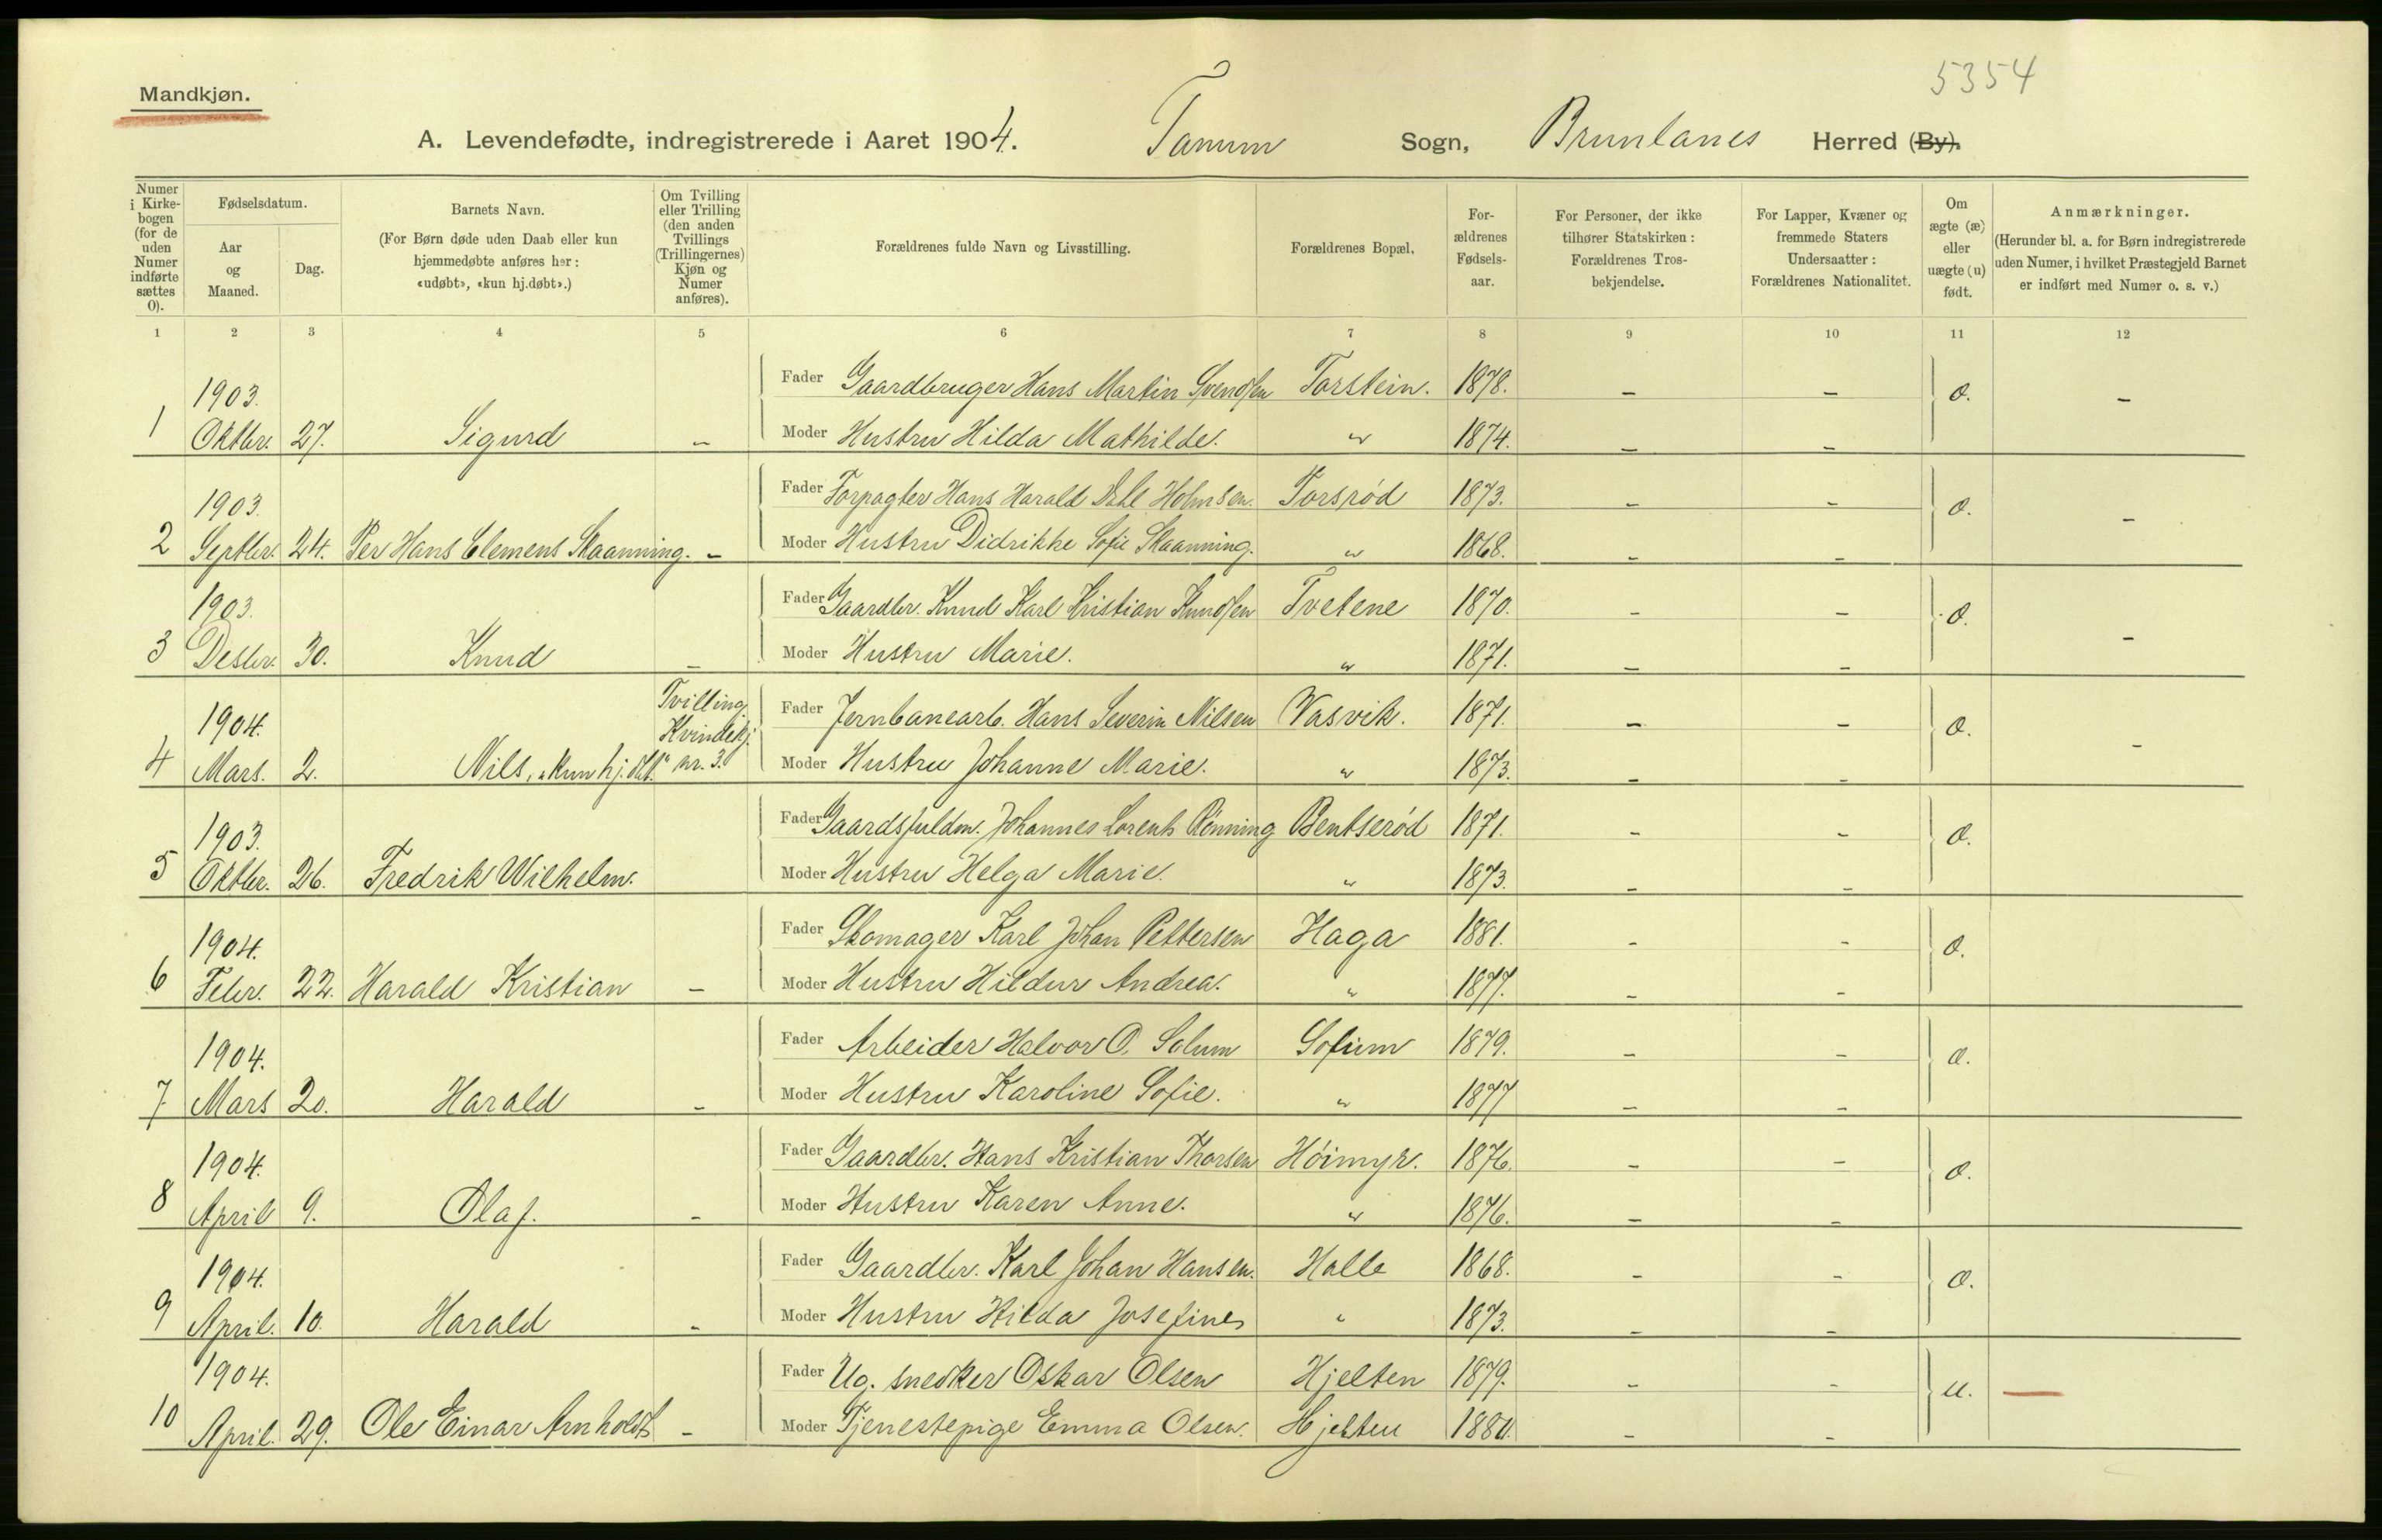 5354
Mandkjøn.
A. Levendefødte, indregistrerede i Aaret 1904. Tanum Sogn, Brunlanes Herred (By).
Numer i Kirke-bogen (for de uden Numer indførte sættes 0).
Fødselsdatum.
Aar og Maaned.
Dag.
Barnets Navn.
(For Børn døde uden Daab eller kun hjemmedøbte anføres her: «udøbt», «kun hj.døbt».)
Om Tvilling eller Trilling (den anden Tvillings (Trillingernes) Kjøn og Numer anføres).
Forældrenes fulde Navn og Livsstilling.
Forældrenes Bopæl.
For-ældrenes Fødsels-aar.
For Personer, der ikke tilhører Statskirken: Forældrenes Tros-bekjendelse.
For Lapper, Kvæner og fremmede Staters Undersaatter: Forældrenes Nationalitet.
Om ægte (æ) eller uægte (u) født.
Anmærkninger.
(Herunder bl. a. for Børn indregistrerede uden Numer, i hvilket Præstegjeld Barnet er indført med Numer o. s. v.)
1 2 3 4 5 6 7 8 9 10 11 12
1903. Fader Gaardbruger Hans Martin Svendsen Torstein. 1878. – – æ. –
1 Oktbr. 27. Sigurd – Moder Hustru Hilda Mathilde. " 1874. – –
1903. Fader Forpagter Hans Harald Dahl Holmsen. Torsrød 1873. – – æ. –
2 Septbr. 24. Per Hans Clemens Skaanning. – Moder Hustru Didrikke Sofie Skaanning. " 1868. – –
1903. Fader Gaardbr. Knud Karl Kristian Knudsen Tvetene 1870. – – æ. –
3 Desbr. 30. Knud – Moder Hustru Marie. " 1871. – –
1904. Tvilling. Kvindekj. Fader Jernbanearb. Hans Severin Nilsen Vasvik. 1871. – – æ. –
4 Mars. 2. Nils, "kun hj.dbt." nr. 3. Moder Hustru Johanne Marie. " 1873. – –
1903. Fader Gaardsfuldm. Johannes Lorents Rønning Bentserød 1871. – – æ.
5 Oktbr. 26. Fredrik Wilhelm. Moder Hustru Helga Marie. " 1873. – –
1904. Fader Skomager Karl Johan Pettersen Haga 1881. – – æ.
6 Febr. 22. Harald Kristian – Moder Hustru Hildur Andrea. " 1877. – –
1904. Fader Arbeider Halvor O. Solum Solum 1879. – – æ.
7 Mars 20. Harald – Moder Hustru Karoline Sofie. " 1877 – –
1904. Fader Gaardbr. Hans Kristian Thorsen Høimyr. 1876. – – æ.
8 April 9. Olaf. – Moder Hustru Karen Anne. " 1876. – –
1904. Fader Gaardbr. Karl Johan Hansen. Halle 1868. – – æ.
9 April. 10. Harald – Moder Hustru Hilda Josefine " 1873. – –
1904. Fader Ug. snedker Oskar Olsen Hjelten 1879. – – u. —
10 April. 29. Ole Einar Arnholdt – Moder Tjenestepige Emma Olsen. Hjelten 1880. – –